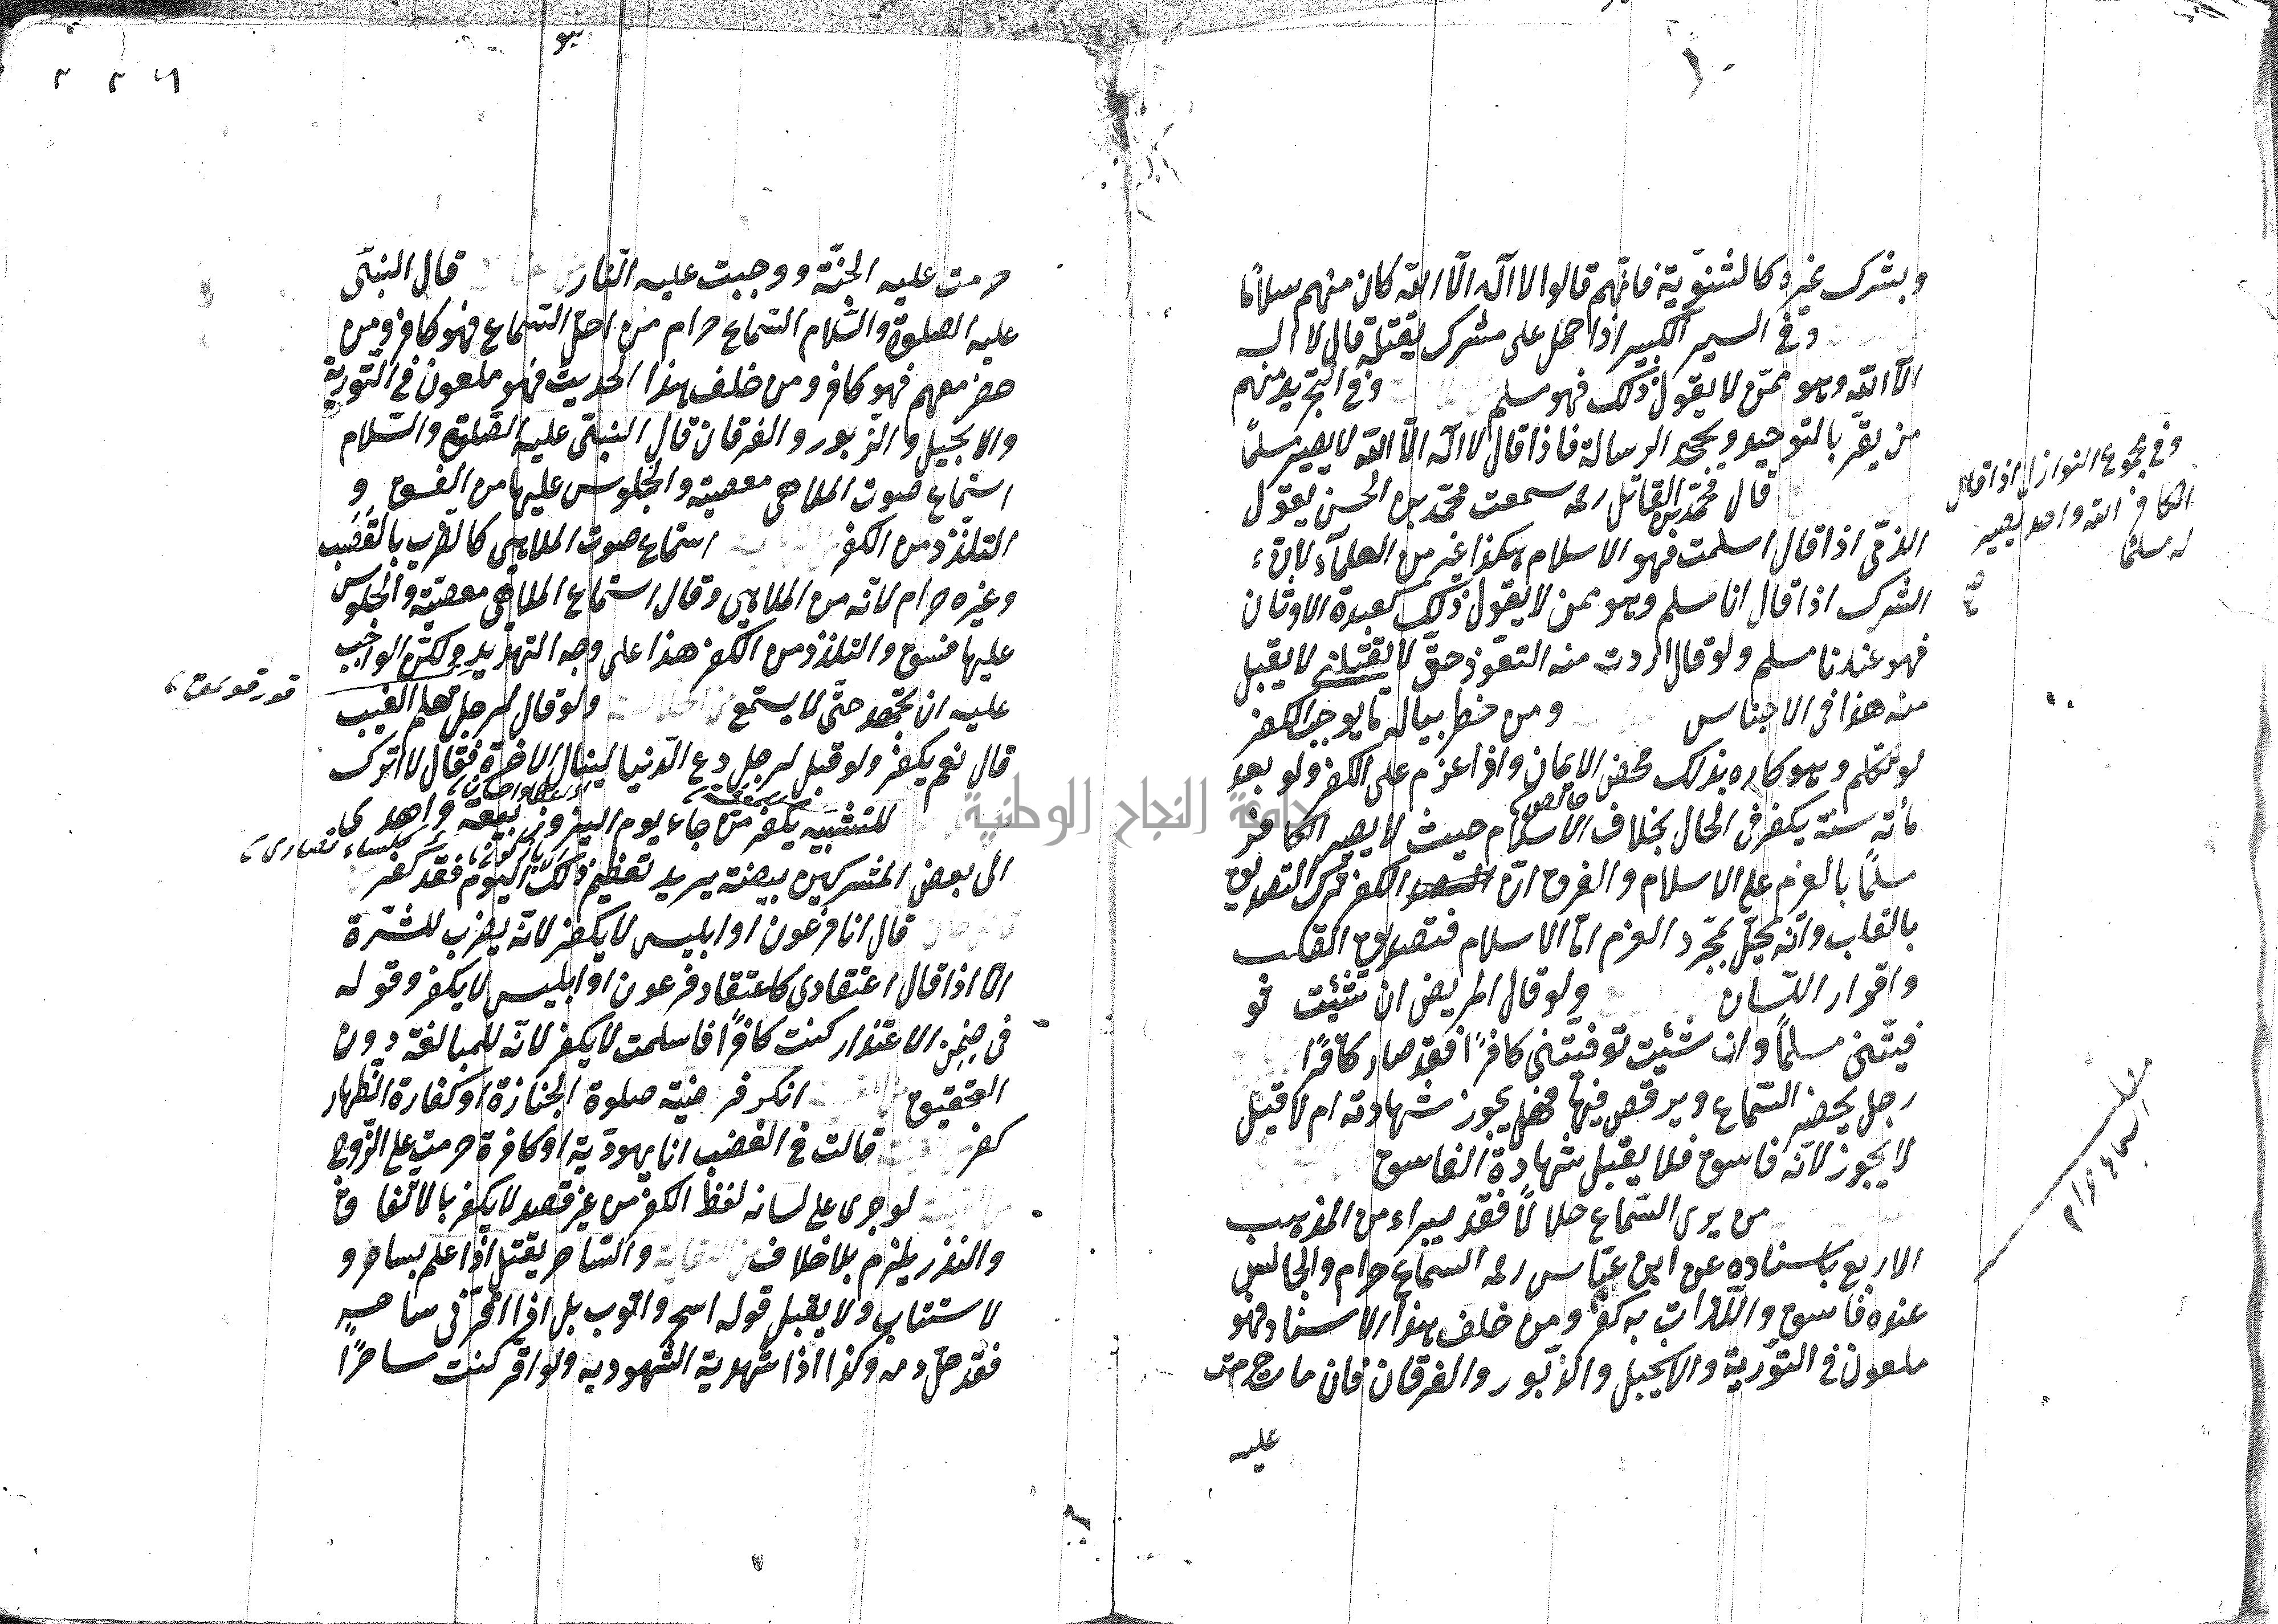 ١٠
وبشرك غيره كالثنوية فانهم قالوا لا اله الا الله كان منهم اسلامًا
وفي السير الكبير اذا حمل على مشرك ليقتله قال لا اله
الا الله وهو ممن لا يقول ذلك فهو مسلم وفي التجريد منهم
من يقر بالتوحيد ويجحد الرسالة فاذا قال لا اله الا الله لا يصير مسلمًا
قال محمد بن القاتل رحمه سمعت محمد بن الحسن يقول
الذمي اذا قال اسلمت فهو الاسلام هكذا غير من العلماء لان
الشرك اذا قال انا مسلم وهو ممن لا يقول ذلك كعبدة الاوثان
فهو عندنا مسلم ولو قال اردت منه التعوذ حتى لا يقتلني لا يقبل
منه هذا في الاجناس ومن خطر بباله ما يوجب الكفر
لو تكلم وهو كاره بذلك محض الايمان واذا عزم على الكفر ولو بعد
مائة سنة يكفر في الحال بخلاف الاسلام حيث لا يصير الكافر
مسلمًا بالعزم على الاسلام والفرق ان الكفر ترك التصديق
بالقلب وانه بمجرد العزم اما الاسلام فتصديق القلب
واقرار اللسان ولو قال المريض ان شئت تو
فيتني مسلمًا وان شئت توفيتني كافرًا فقد صار كافرًا
رجل يحضر السماع ويرقص فيها فهل يجوز شهادته ام لا قيل
لا يجوز لانه فاسق فلا يقبل شهادة الفاسق
من يرى السماع حلالًا فقد يبراء من المذهب
الاربع باسناده عن ابن عباس رحمه السماع حرام والجالس
عنده فاسق والتلذاذ به كفر ومن خلف هذا الاسناد فهو
ملعون في التورية والانجيل والزبور والفرقان فان مات حرمت
عليه
وفي مجموع النوازل اذا قال
الكافر الله واحد يصير
له مسلمًا
صح
السماع حرام
حرمت عليه الجنة ووجبت عليه النار قال النبي
عليه الصلوة والسلام السماع حرام من احل السماع فهو كافر ومن
حضر معهم فهو كافر ومن خلف هذا الحديث فهو ملعون في التورية
والانجيل والزبور والفرقان قال النبي عليه الصلوة والسلام
استماع صوت الملاهي معصية والجلوس عليها من الفسق و
التلذذ من الكفر استماع صوت الملاهي كالضرب بالقضب
وغيره حرام لانه من الملاهي وقال استماع الملاهي معصية والجلوس
عليها فسق والتلذذ من الكفر هذا على وجه التهديد ولكن الواجب
عليه ان يجتهد حتى لا يستمع ولو قال لرجل تعلم الغيب
قال نعم يكفر ولو قيل لرجل دع الدنيا لينال الاخرة فقال لا اترك
للتشبيه يكفر من جاء يوم النيروز ببيعة واهدى
الى بعض المشركين بيضة يريد تعظيم ذلك اليوم فقد كفر
قال انا فرعون او ابليس لا يكفر لانه يضرب للشرة
اما اذا قال اعتقادي كاعتقاد فرعون او ابليس لا يكفر وقوله
في ضمن الاعتذار كنت كافرًا فاسلمت لا يكفر لانه للمبالغة دون
التحقيق انكر فرضية صلوة الجنازة او كفارة الظهار
كفر قالت في الغضب انا يهودية او كافرة حرمت على الزوج
لو جرى على لسانه لفظ الكفر من غير قصد لا يكفر بالاتفاق
والنذر يلزم بلا خلاف والساحر يقتل اذا علم بساحر و
لا ستتاب ولا يقبل قوله اسحر واتوب بل اذا اقر اني ساحر
فقد حل دمه وكذا اذا شهدية الشهود به ولو اقر كنت ساحرًا
جامعة النجاح الوطنية